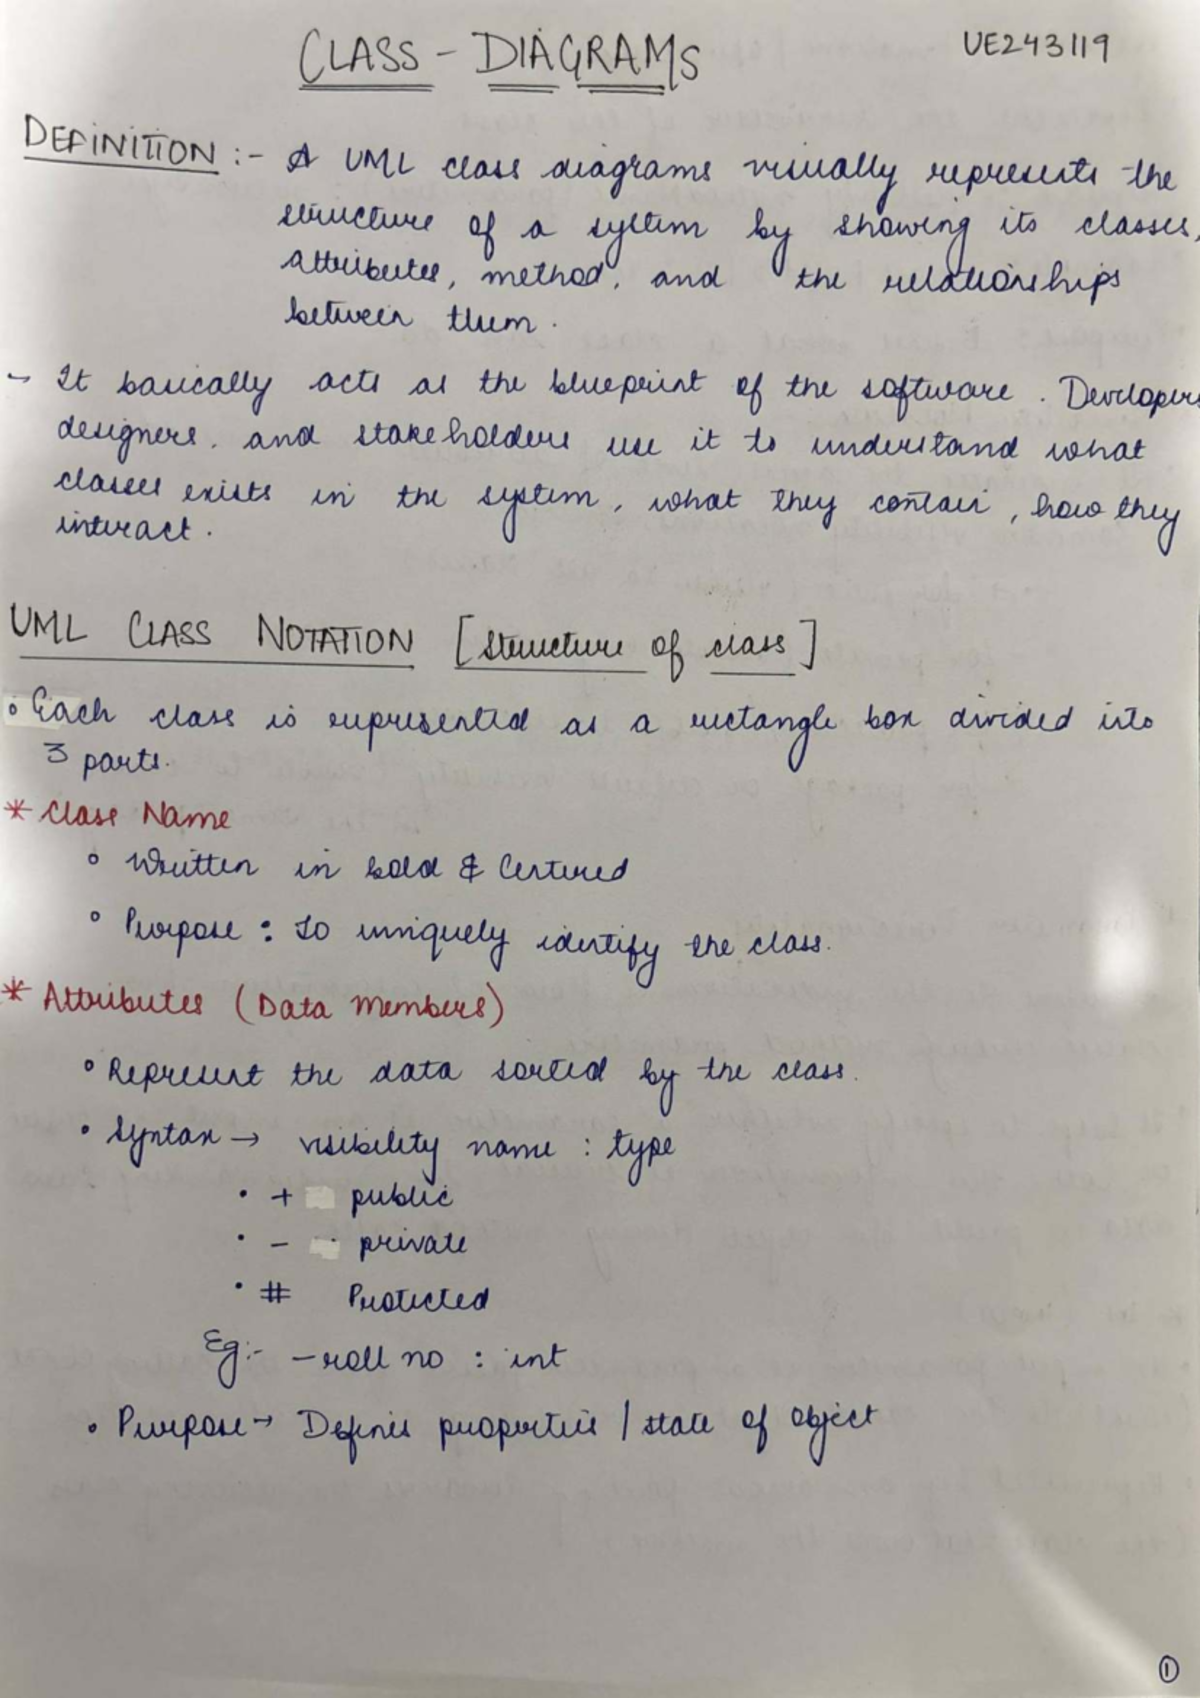 CLASS - DIAGRAMS
UE243119
DEFINITION :- A UML class diagrams visually represents the
structure of a system by showing its classes,
attributes, method, and the relationships
between them.
- It basically acts as the blueprint of the software. Developers
designers, and stakeholders use it to understand what
classes exists in the system, what they contain, how they
interact.
UML CLASS NOTATION [structure of class]
• Each class is represented as a rectangle box divided into
3 parts.
* Class Name
° Written in bold & Centered
° Purpose : to uniquely identify the class.
* Attributes (Data Members)
° Represent the data sorted by the class.
• Syntax → visibility name : type
• + public
• - private
• # Protected
Eg:- - roll no : int
• Purpose → Defines properties / state of object
1